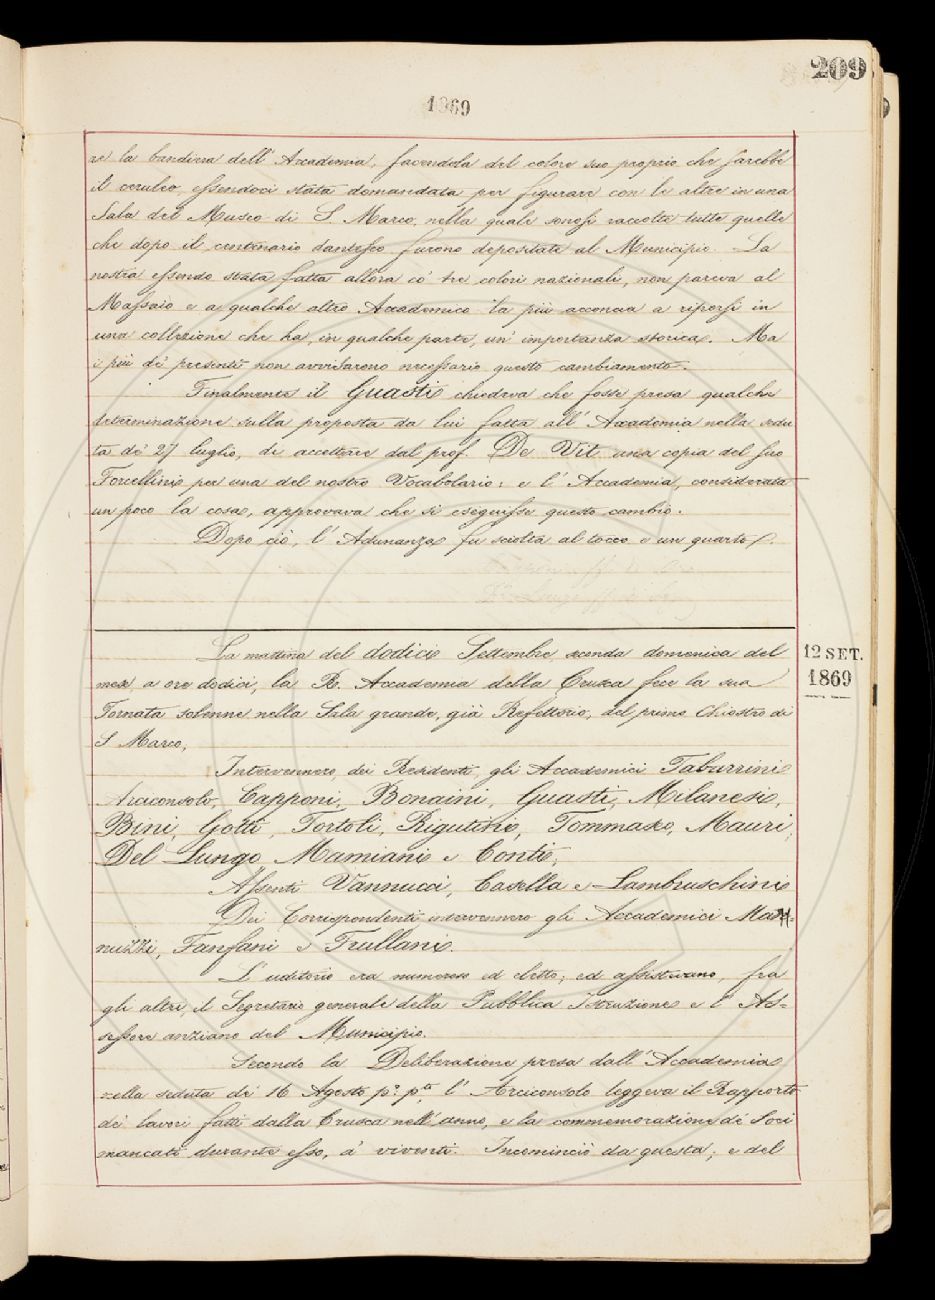 209
1869
re la bandiera dell' Accademia, facendola del colore suo proprio che sarebbe
il ceruleo, essendoci stata domandata per figurare con le altre in una
Sala del Museo di S. Marco, nella quale sonosi raccolte tutte quelle
che dopo il centenario dantesco furono depositate al Municipio. La
nostra essendo stata fatta allora co' tre colori nazionali, non pareva al
Massaio e a qualche altro Accademico la più acconcia a riporsi in
una collezione che ha, in qualche parte, un' importanza storica. Ma
i più de' presenti non avvisarono necessario questo cambiamento.
Finalmente il Guasti chiedeva che fosse presa qualche
determinazione sulla proposta da lui fatta all' Accademia nella sedu
ta de' 27 luglio, di accettare dal prof. De Vit una copia del suo
Forcellini per una del nostro Vocabolario: e l' Accademia, considerata
un poco la cosa, approvava che si eseguisse questo cambio.
Dopo ciò, l' Adunanza fu sciolta al tocco e un quarto.
12 SET.
1869
La mattina del dodici Settembre seconda domenica del
mese, a ore dodici, la R. Accademia della Crusca fece la sua
Tornata solenne nella Sala grande, già Refettorio, del primo Chiostro di
S. Marco.
Intervennero, dei Residenti, gli Accademici Tabarrini
Arciconsolo, Capponi, Bonaini, Guasti, Milanesi,
Bini, Gotti, Tortoli, Rigutini, Tommaseo, Mauri,
Del Lungo Mamiani e Conti,
Assenti Vannucci, Casella e Lambruschini
Dei Corrispondenti intervennero gli Accademici Man=
nuzzi, Fanfani e Trullani.
L' uditorio era numeroso ed eletto; ed assistevano, fra
gli altri, il Segretario generale della Pubblica Istruzione e l' As=
sessore anziano del Municipio.
Secondo la Deliberazione presa dall' Accademia
nella seduta de' 16 Agosto p.º p.tº l' Arciconsolo leggeva il Rapporto
de' lavori fatti dalla Crusca nell' anno, e la commemorazione de' Soci
mancati durante esso, a' viventi. Incominciò da questa; e del